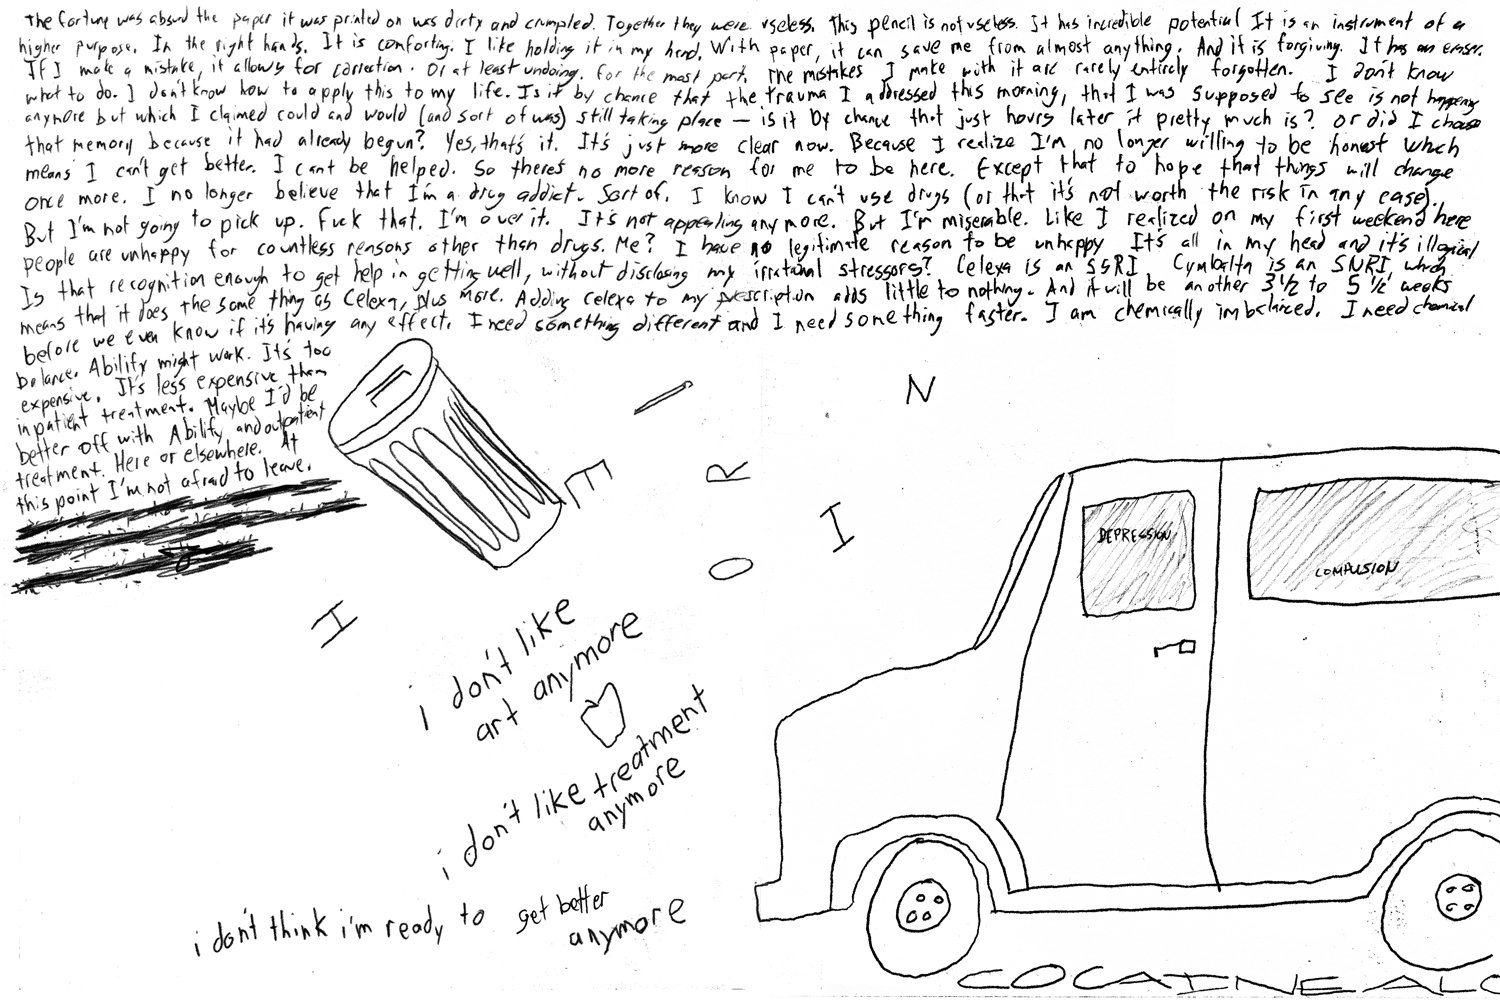 The fortune was absurd the paper it was printed on was dirty and crumpled. Together they were useless. This pencil is not useless. It has incredible potential It is an instrument of a
higher purpose. In the right hands. It is comforting. I like holding it in my hand. With paper, it can save me from almost anything. And it is forgiving. It has an eraser.
If I make a mistake, it allows for correction. Or at least undoing. For the most part. The mistakes I make with it are rarely entirely forgotten. I don't know
what to do. I don't know how to apply this to my life. Is it by chance that the trauma I addressed this morning, that I was supposed to see is not happening
anymore but which I claimed could and would (and sort of was) still taking place — is it by chance that just hours later it pretty much is? Or did I choose
that memory because it had already begun? Yes, that's it. It's just more clear now. Because I realize I'm no longer willing to be honest which
means I can't get better. I cant be helped. So there's no more reason for me to be here. Except that to hope that things will change
once more. I no longer believe that I'm a drug addict. Sort of. I know I can't use drugs (or that it's not worth the risk in any case).
But I'm not going to pick up. Fuck that. I'm over it. It's not appealing any more. But I'm miserable. Like I realized on my first weekend here
people are unhappy for countless reasons other than drugs. Me? I have no legitimate reason to be unhappy It's all in my head and it's illogical
Is that recognition enough to get help in getting well, without disclosing my irrational stressors? Celexa is an SSRI Cymbalta is an SNRI, which
means that it does the same thing as Celexa, plus more. Adding Celexa to my prescription adds little to nothing. And it will be another 3 1/2 to 5 1/2 weeks
before we even know if it's having any effect. I need something different and I need something faster. I am chemically imbalanced. I need chemical
balance. Ability might work. It's too
expensive. It's less expensive than
inpatient treatment. Maybe I'd be
better off with Abilify and outpatient
treatment. Here or elsewhere. At
this point I'm not afraid to leave.
N
I
E
R
I
O
I
DEPRESSION
COMPULSION
i don't like
art anymore
i don't like treatment
anymore
i don't think i'm ready to get better
anymore
COCAINE ALC